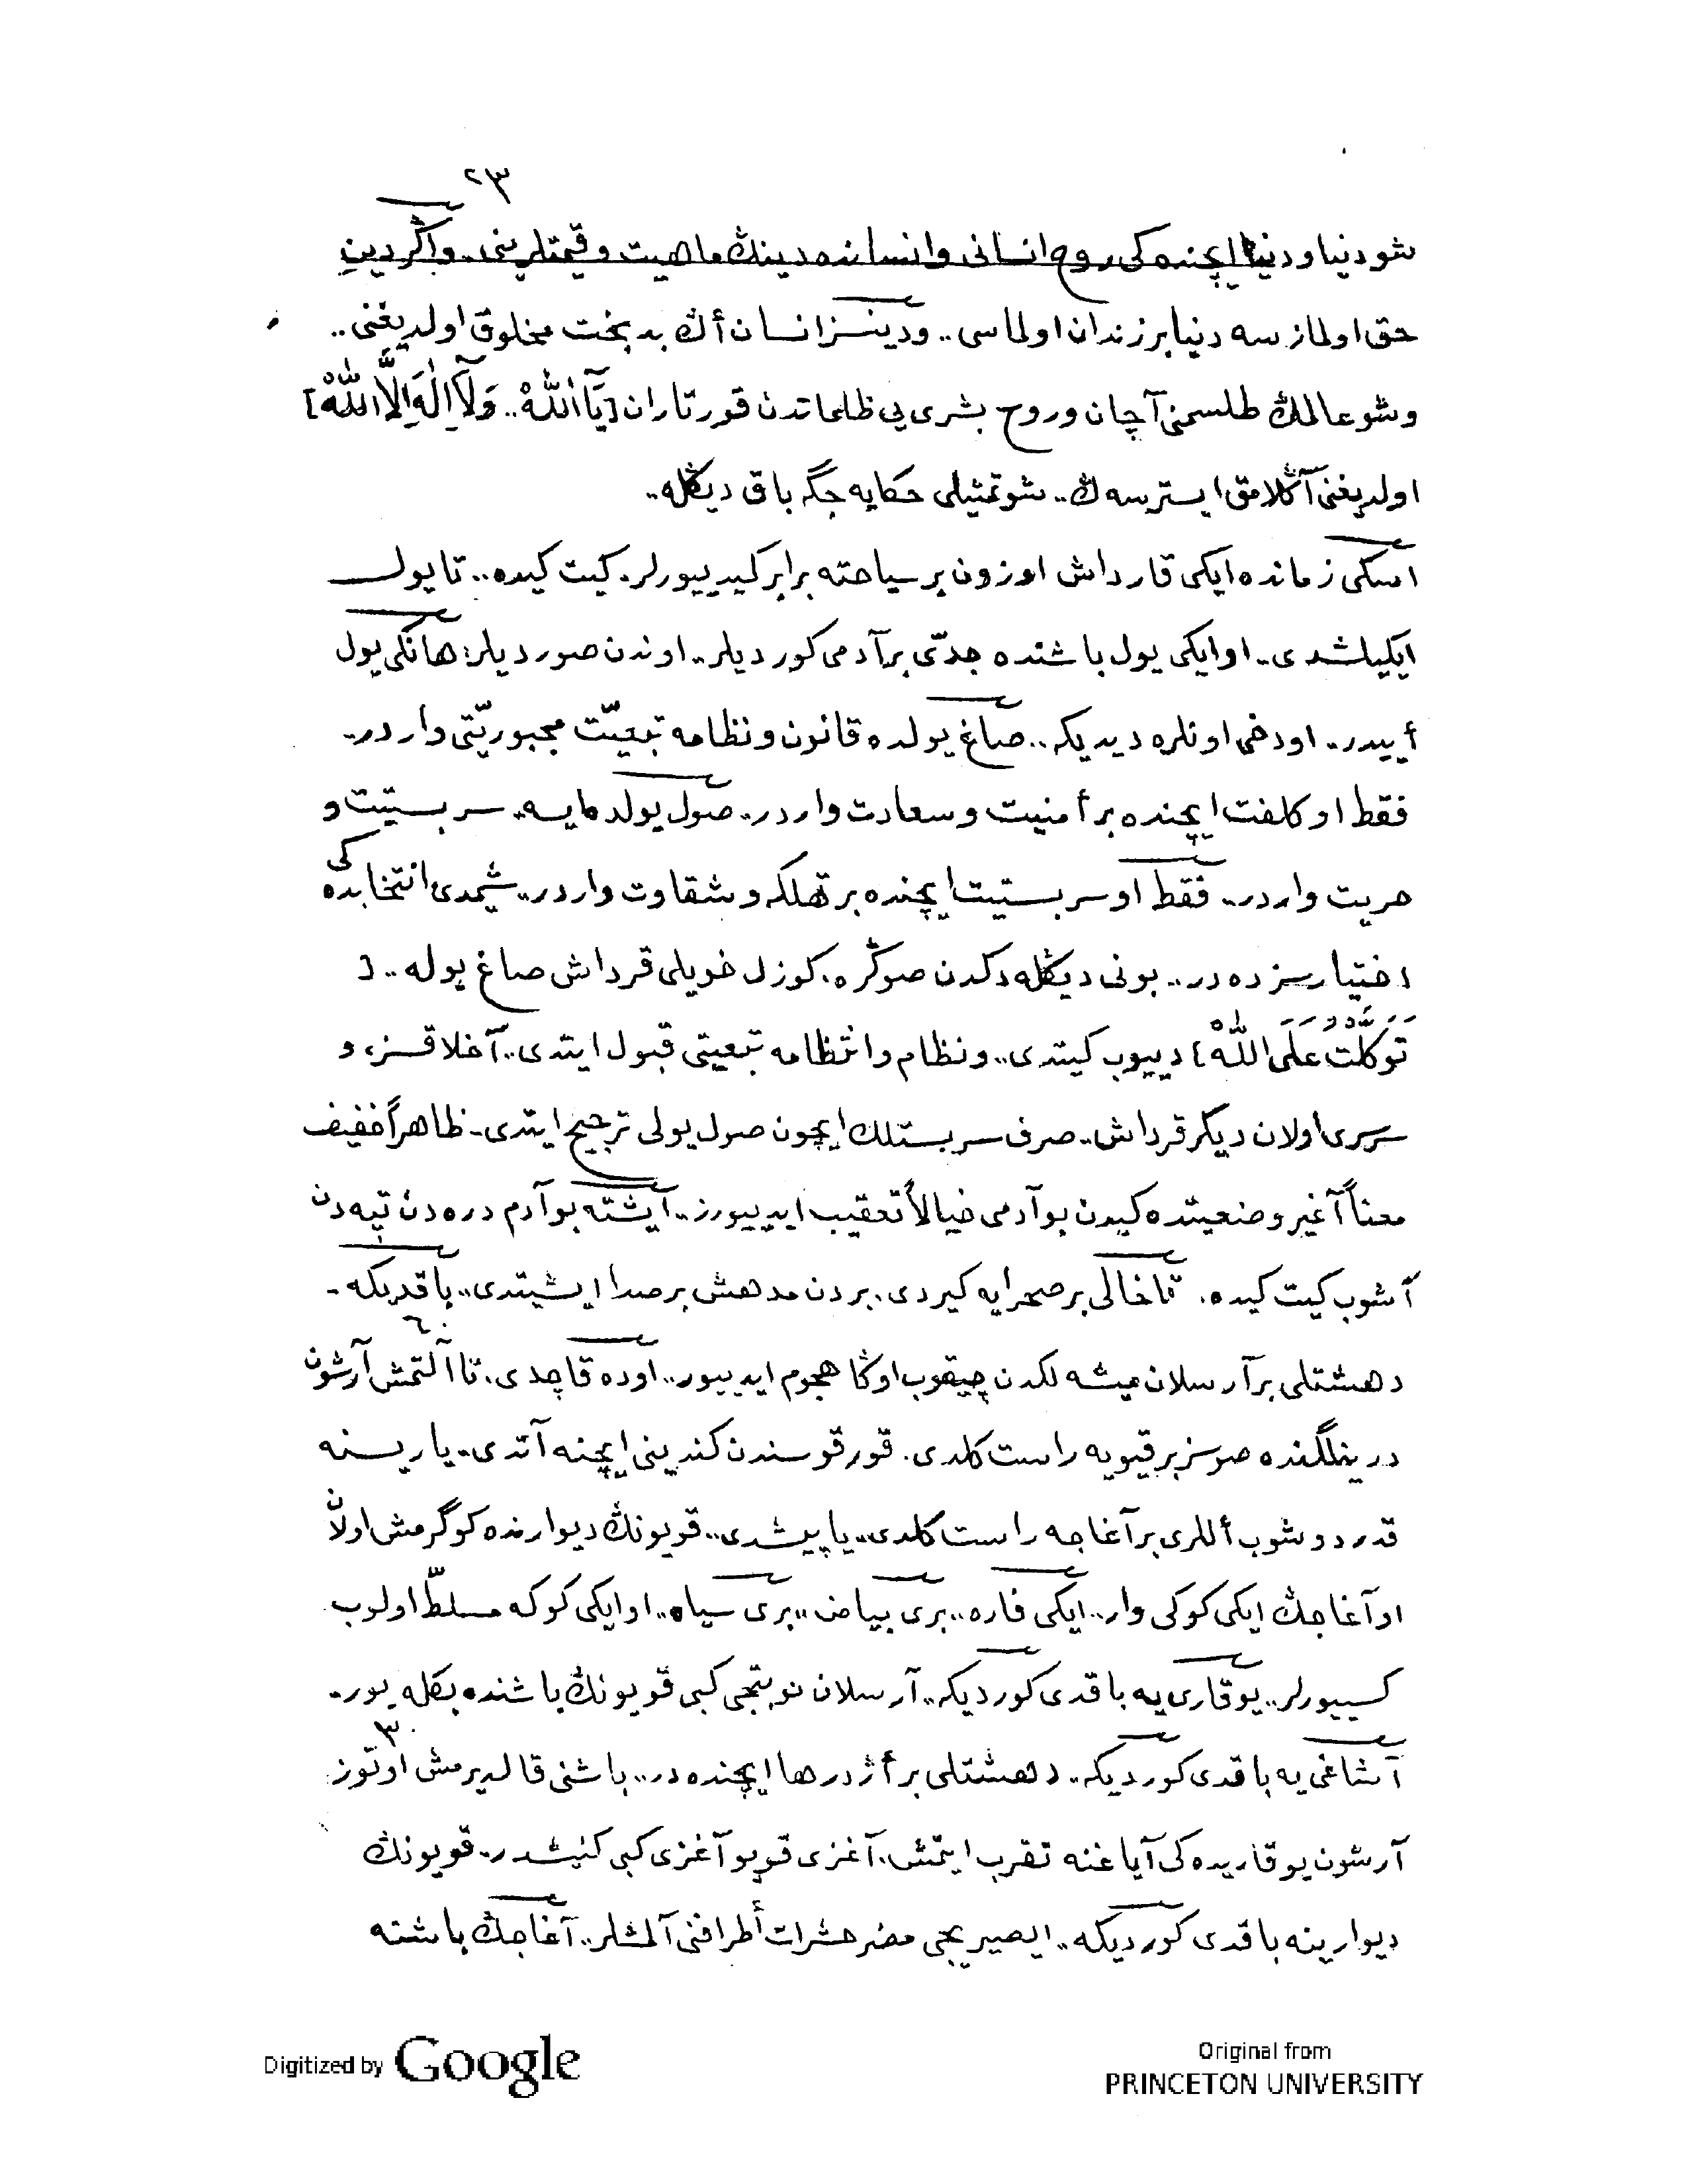 ٢٣
شو دنیا و دنیا ایچنده کی روح انسانی و انسانده دینڭ ماهیت و قیمتلرینی.. و اگر دینِ
حق اولمازسه دنیا بر زندان اولماسی.. و دینسز انسان أڭ بدبخت مخلوق اولدیغنی..
و شو عالمڭ طلسمنی آچان و روح بشری یی ظلماتدن قورتاران [یَٓا اَللّٰهْ.. وَلَٓا اِلٰهَ اِلَّا اللّٰهْ]
اولدیغنی آڭلامق ایسترسه ڭ.. شو تمثیلی حکایه جگه باق دیڭله..
اسکی زمانده ایکی قارداش اوزون بر سیاحته برابر کیدییورلر. کیت کیده.. تا یول
ایکیلشدی.. او ایکی یول باشنده جدّی بر آدمی کوردیلر.. اوندن صوردیلر: هانکی یول
أییدر.. اودخی اونلره دیدیکه.. صاغ یولده قانون و نظامه تبعیّت مجبوریّتی واردر..
فقط او کلفت ایچنده بر أمنیت و سعادت واردر.. صول یولده ایسه. سربستیت و
حریت واردر.. فقط او سربستیت ایچنده بر تهلکه و شقاوت واردر.. شیمدی انتخابده کی
اختیار سزده در.. بونی دیڭله دکدن صوڭره. کوزل خویلی قرداش صاغ یوله.. [
تَوَكَّلْتُ عَلَى اللّٰهْ] دییوب کیتدی.. و نظام و انتظامه تبعیتی قبول ایتدی.. آخلاقسز، و
سرسری اولان دیگر قرداش.. صرف سربستلك ایچون صول یولی ترجیح ایتدی.. ظاهراً خفیف
معناً آغیر وضعیتده کیدن بو آدمی خیالاً تعقیب ایدییورز.. ایشته بو آدم دره دن تپه دن
آشوب کیت کیده. تا خالی بر صحرایه کیردی. بردن مدهش بر صدا ایشیتدی.. باقدیکه..
٦٠
دهشتلی بر آرسلان میشه لکدن چیقوب اوڭا هجوم ایدییور.. اوده قاچدی. تا آلتمش آرشون
درینلگنده صوسز بر قیویه راست کلدی. قورقوسندن کندینی ایچنه آتدی.. یاریسنه
قدر دوشوب أللری بر آغاجه راست کلدی.. یاپیشدی.. قویونڭ دیوارنده کوگرمش اولان
او آغاجڭ ایکی کوکی وار.. ایکی فاره.. بری بیاض.. بری سیاه.. او ایکی کوکه مسلطّ اولوب
کسییورلر.. یوقاری یه باقدی کوردیکه.. آرسلان نوبتجی کبی قویونڭ باشنده بکله یور..
٣٠
آشاغی یه باقدی کوردیکه.. دهشتلی بر أژدرها ایچنده در.. باشنی قالدیرمش اوتوز
آرشون یوقاریده کی آیاغنه تقرب ایتمش. آغزی قویو آغزی کبی کنیشدر.. قویونڭ
دیوارینه باقدی کوردیکه.. ایصیریجی مضر حشرات أطرافنی آلمشلر.. آغاجڭ باشنه
Digitized by Google
Original from
PRINCETON UNIVERSITY